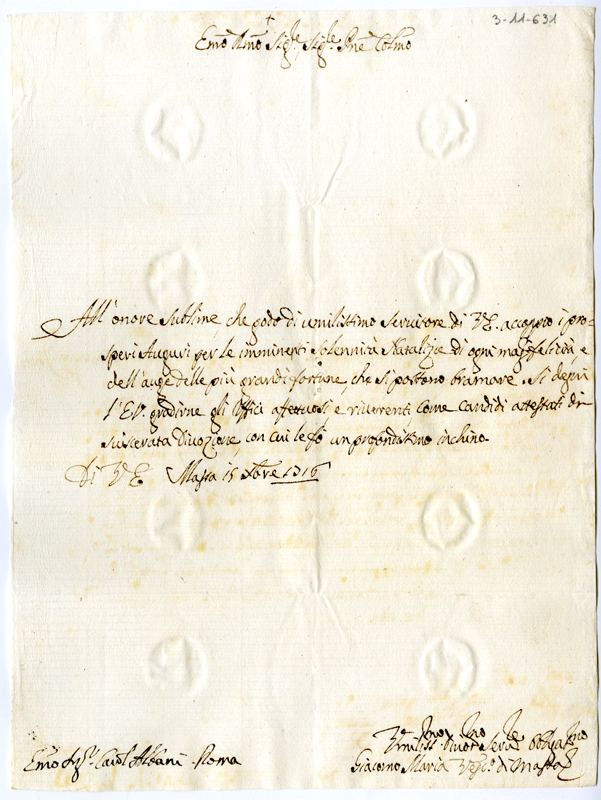 3-11-631
Emo Rmo Sigre, Sigre Pne Colmo
All'onore sublime, che godo di umilissimo servitore di V.E. accoppio i pro=
speri Auguri per le imminenti solennità Natalizie di ogni maggr felicità e
dell'auge delle più grandi fortune, che si possono bramare. Si degni
l'E.V. gradirne gli Offici affettuosi e riverenti come candidi attestati di
sviscerata Divozione, con cui le fò un profondissimo inchino.
Di V.E. Massa 15 Xbre 1716
Umiliss Divot Serv Obbgat
Emo Sigr Card Albani - Roma
Giacomo Maria Vesco di Massa